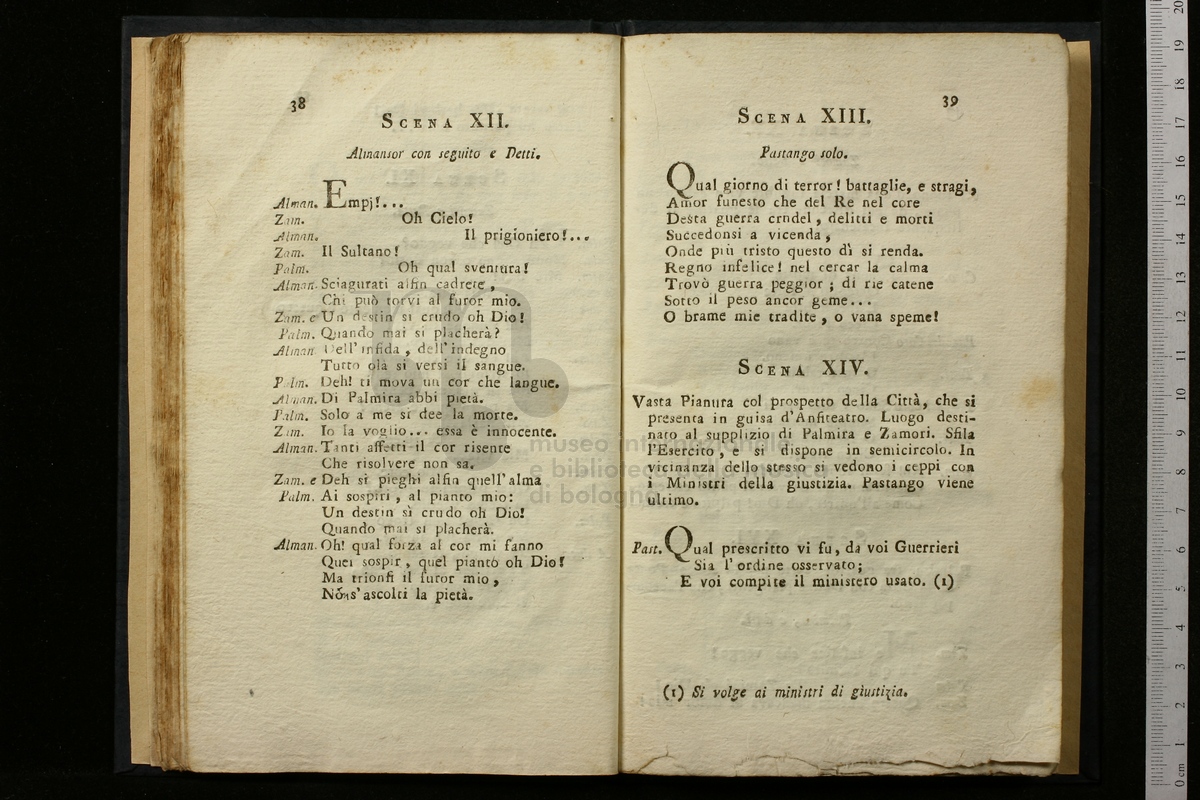 38
SCENA XII.
Almansor con seguito e Detti.
Alman. Empj!...
Zam. Oh Cielo!
Alman. Il prigioniero!...
Zam. Il Sultano!
Palm. Oh qual sventura!
Alman. Sciagurati alfin cadrete,
Chi può torvi al furor mio.
Zam. e Un destin sì crudo oh Dio!
Palm. Quando mai si placherà?
Alman. Dell'infida, dell'indegno
Tutto olà si versi il sangue.
Palm. Deh! ti mova un cor che langue.
Alman. Di Palmira abbi pietà.
Palm. Solo a me si dee la morte.
Zam. Io la voglio... essa è innocente.
Alman. Tanti affetti il cor risente
Che risolvere non sa.
Zam. e Deh si pieghi alfin quell'alma
Palm. Ai sospiri, al pianto mio:
Un destin sì crudo oh Dio!
Quando mai si placherà.
Alman. Oh! qual forza al cor mi fanno
Quei sospir, quel pianto oh Dio!
Ma trionfi il furor mio,
Non s'ascolti la pietà.
39
SCENA XIII.
Pastango solo.
Qual giorno di terror! battaglie, e stragi,
Amor funesto che del Re nel core
Desta guerra crndel, delitti e morti
Succedonsi a vicenda,
Onde più tristo questo dì si renda.
Regno infelice! nel cercar la calma
Trovò guerra peggior; di rie catene
Sotto il peso ancor geme...
O brame mie tradite, o vana speme!
SCENA XIV.
Vasta Pianura col prospetto della Città, che si
presenta in guisa d'Anfiteatro. Luogo desti-
nato al supplizio di Palmira e Zamori. Sfila
l'Esercito, e si dispone in semicircolo. In
vicinanza dello stesso si vedono i ceppi con
i Ministri della giustizia. Pastango viene
ultimo.
Past. Qual prescritto vi fu, da voi Guerrieri
Sia l'ordine osservato;
E voi compite il ministero usato. (1)
(1) Si volge ai ministri di giustizia.
museo internazionale
e biblioteca della musica
di bologna